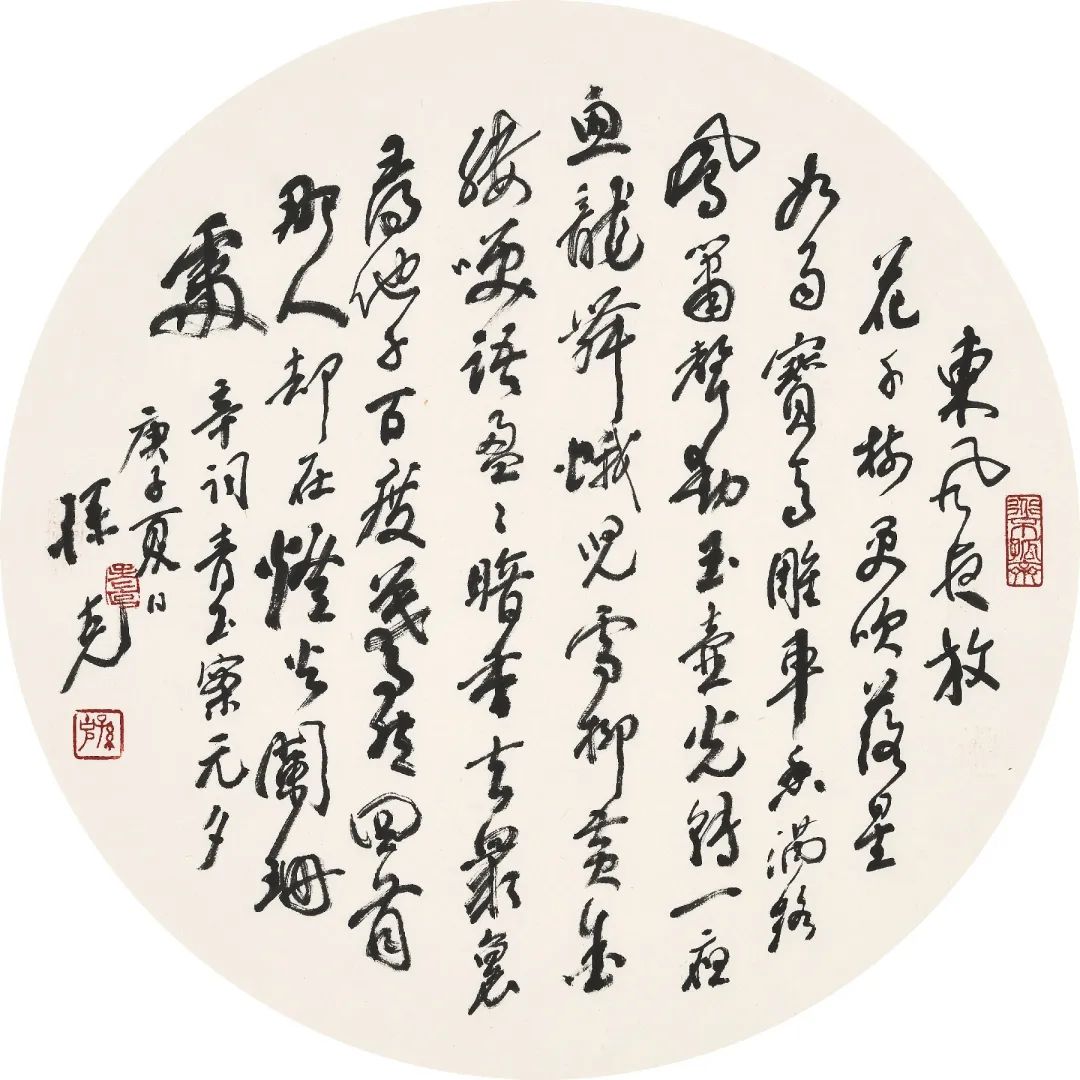 東風夜放
花千樹更吹落星
如雨寶馬雕車香滿路
鳳簫聲動玉壺光轉一夜
魚龍舞蛾兒雪柳黃金
縷笑語盈〻暗香去眾裏
尋他千百度驀然回首
那人却在燈火闌珊
處
辛詞青玉案元夕
庚子夏日
孫克